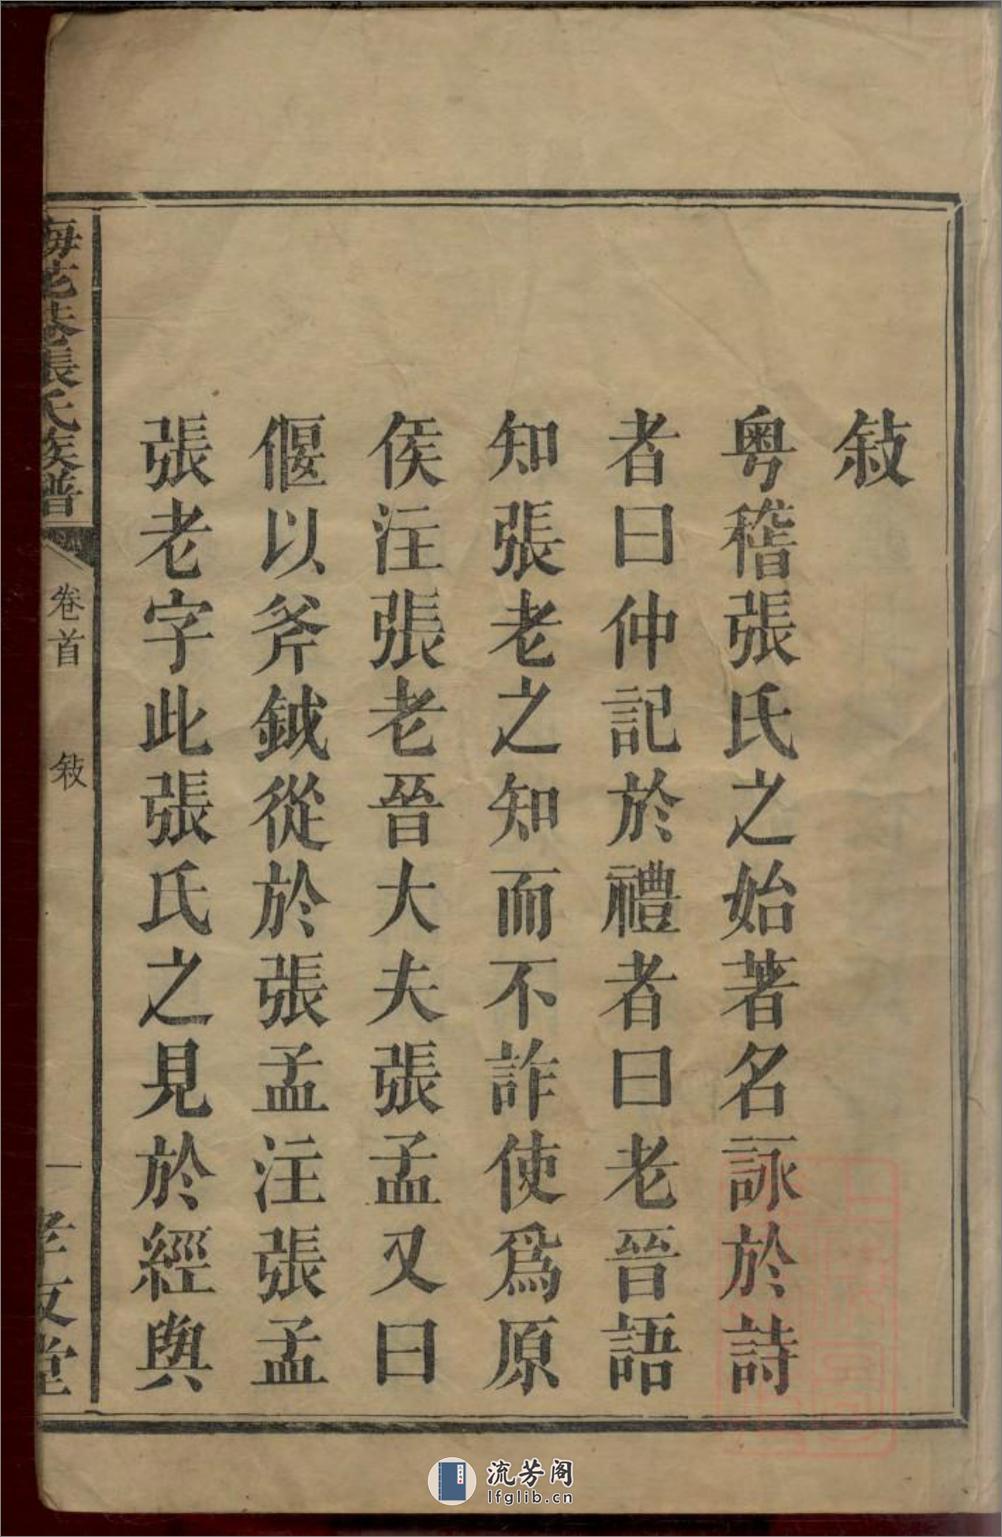 敍
粤稽張氏之始著名詠於詩
者曰仲記於禮者曰老晉語
知張老之知而不詐使爲原
侯注張老晉大夫張孟又曰
偃以斧鉞從於張孟注張孟
張老字此張氏之見於經與
海花巷張氏族譜
卷首
敍
一
孝友堂
流芳阁
lfglib.cn